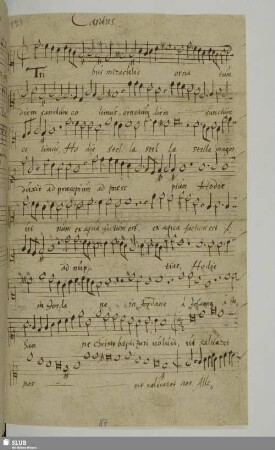 Cantus
Tri bus miraculis orna tum
Diem sanctum co limus, ornatum diem sanctum
co limus, Ho die stel la stel la stella magos
duxit ad præsepium ad præse pium Hodie
vi num ex aqua factum est, ex aqua factum est
ad nup tias, Hodie
in Jorda ne in Jordane a Johanne
Christus baptizari voluit, ut salvaret
nos ut salvaret nos, Alle,
SLUB
Wir führen Wissen.